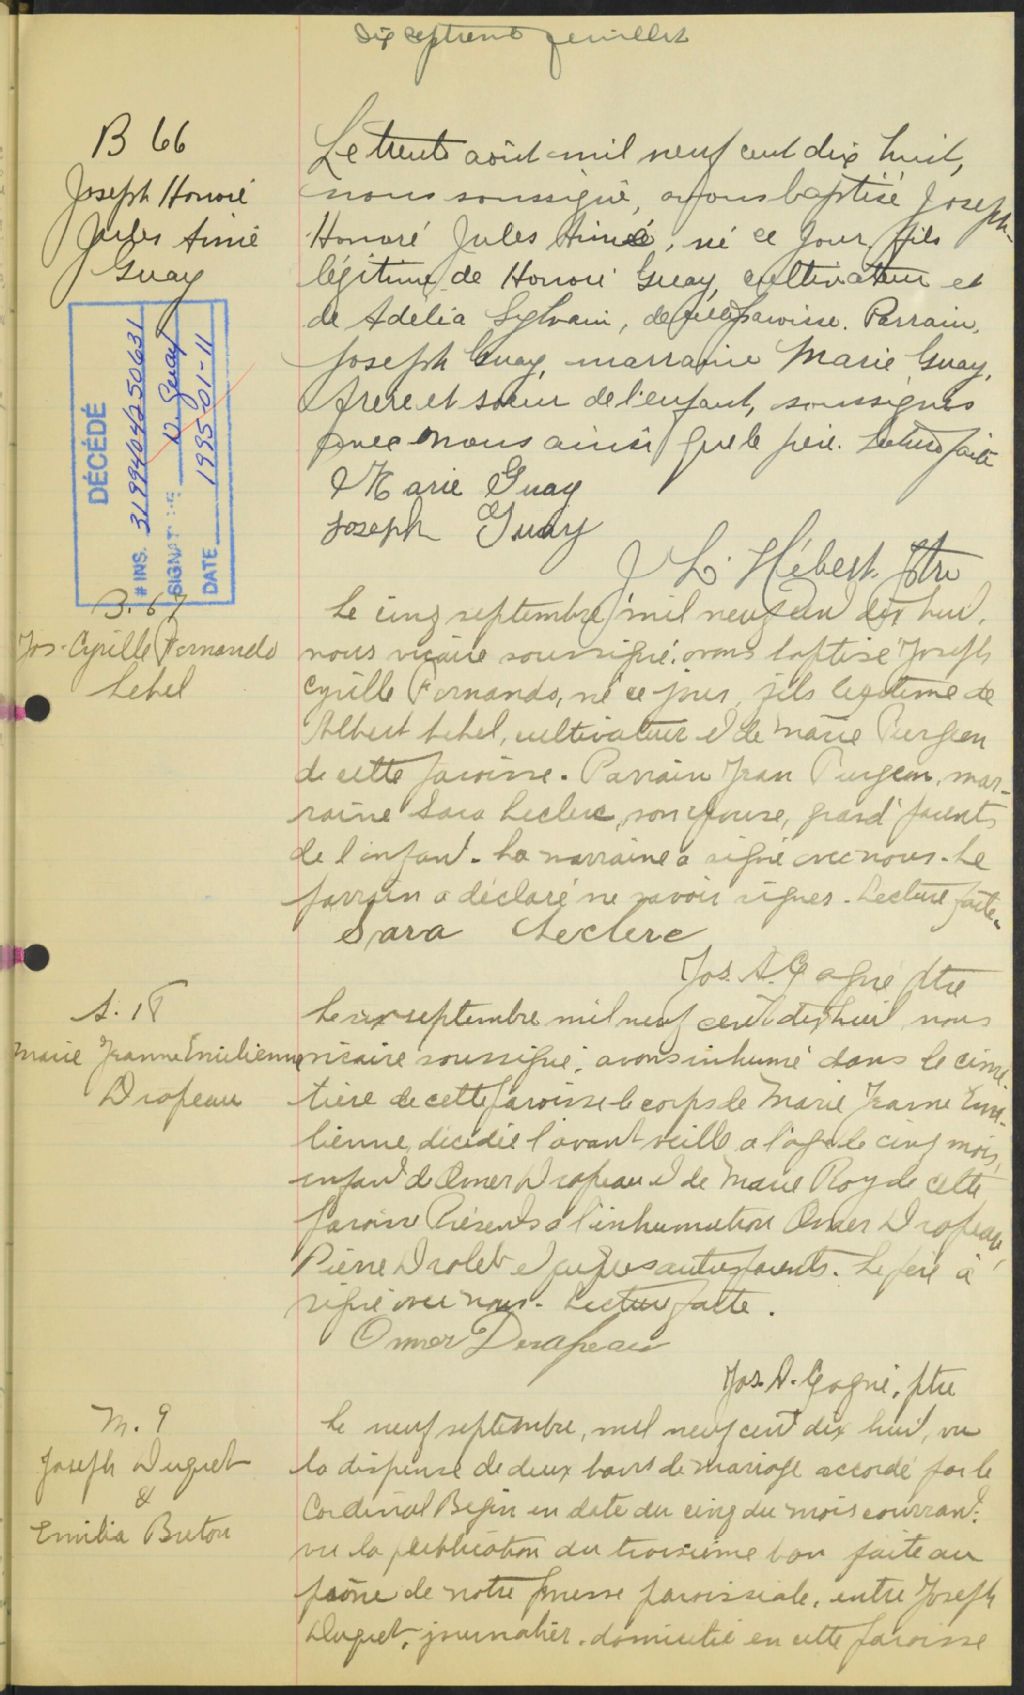 Dix septieme feuillet
B 66
Joseph Honoré
Jules Aimé
Guay
Le trente août mil neuf cent dix huit,
nous soussigné, avons baptisé Joseph
Honoré Jules Aimé, né ce jour, fils
légitime de Honoré Guay, cultivateur et
de Adelia Sylvain, de cette paroisse. Parrain,
Joseph Guay, marraine Marie Guay,
frère et soeur de l'enfant, soussignés
avec nous ainsi que le père. Lecture faite
Marie Guay
Joseph Guay
J. L. Hébert. Ptre
DÉCÉDÉ
# INS. 3199404250631
SIGNATURE D. Guay
DATE 1995-01-11
B. 67
Jos. Cyrille Fernando
Lebel
Le cinq septembre mil neuf cent dix huit,
nous vicaire soussigné, avons baptisé Joseph
Cyrille Fernando, né ce jour, fils legitime de
Albert Lebel, cultivateur et de Marie Turgeon
de cette paroisse. Parrain Jean Turgeon, mar-
raine Sara Leclerc, son épouse, grand'parents
de l'enfant. La marraine a signé avec nous. Le
parrain a déclaré ne savoir signer. Lecture faite.
Sara Leclerc
Jos. A. Gagné ptre
S. 18
Marie Jeanne Emilienne
Drapeau
Le septembre mil neuf cent dix huit, nous
vicaire soussigné, avons inhumé dans le cime-
tière de cette paroisse le corps de Marie Jeanne Emi-
lienne, décédée l'avant veille a l'age de cinq mois,
enfant de Omer Drapeau et de Marie Roy de cette
paroisse Présents a l'inhumation Omer Drapeau,
Pierre Drolet et autres parents. Le père a
signé avec nous. Lecture faite.
Omer Drapeau
Jos. A. Gagné, ptre
M. 9
Joseph Duguet
&
Emilia Buton
Le neuf septembre, mil neuf cent dix huit, vu
la dispense de deux bans de mariage accordé par le
Cardinal Begin en date du cinq du mois courrant:
vu la publication du troisième ban faite au
prône de notre messe paroissiale, entre Joseph
Duguet, journalier, domicilié en cette paroisse